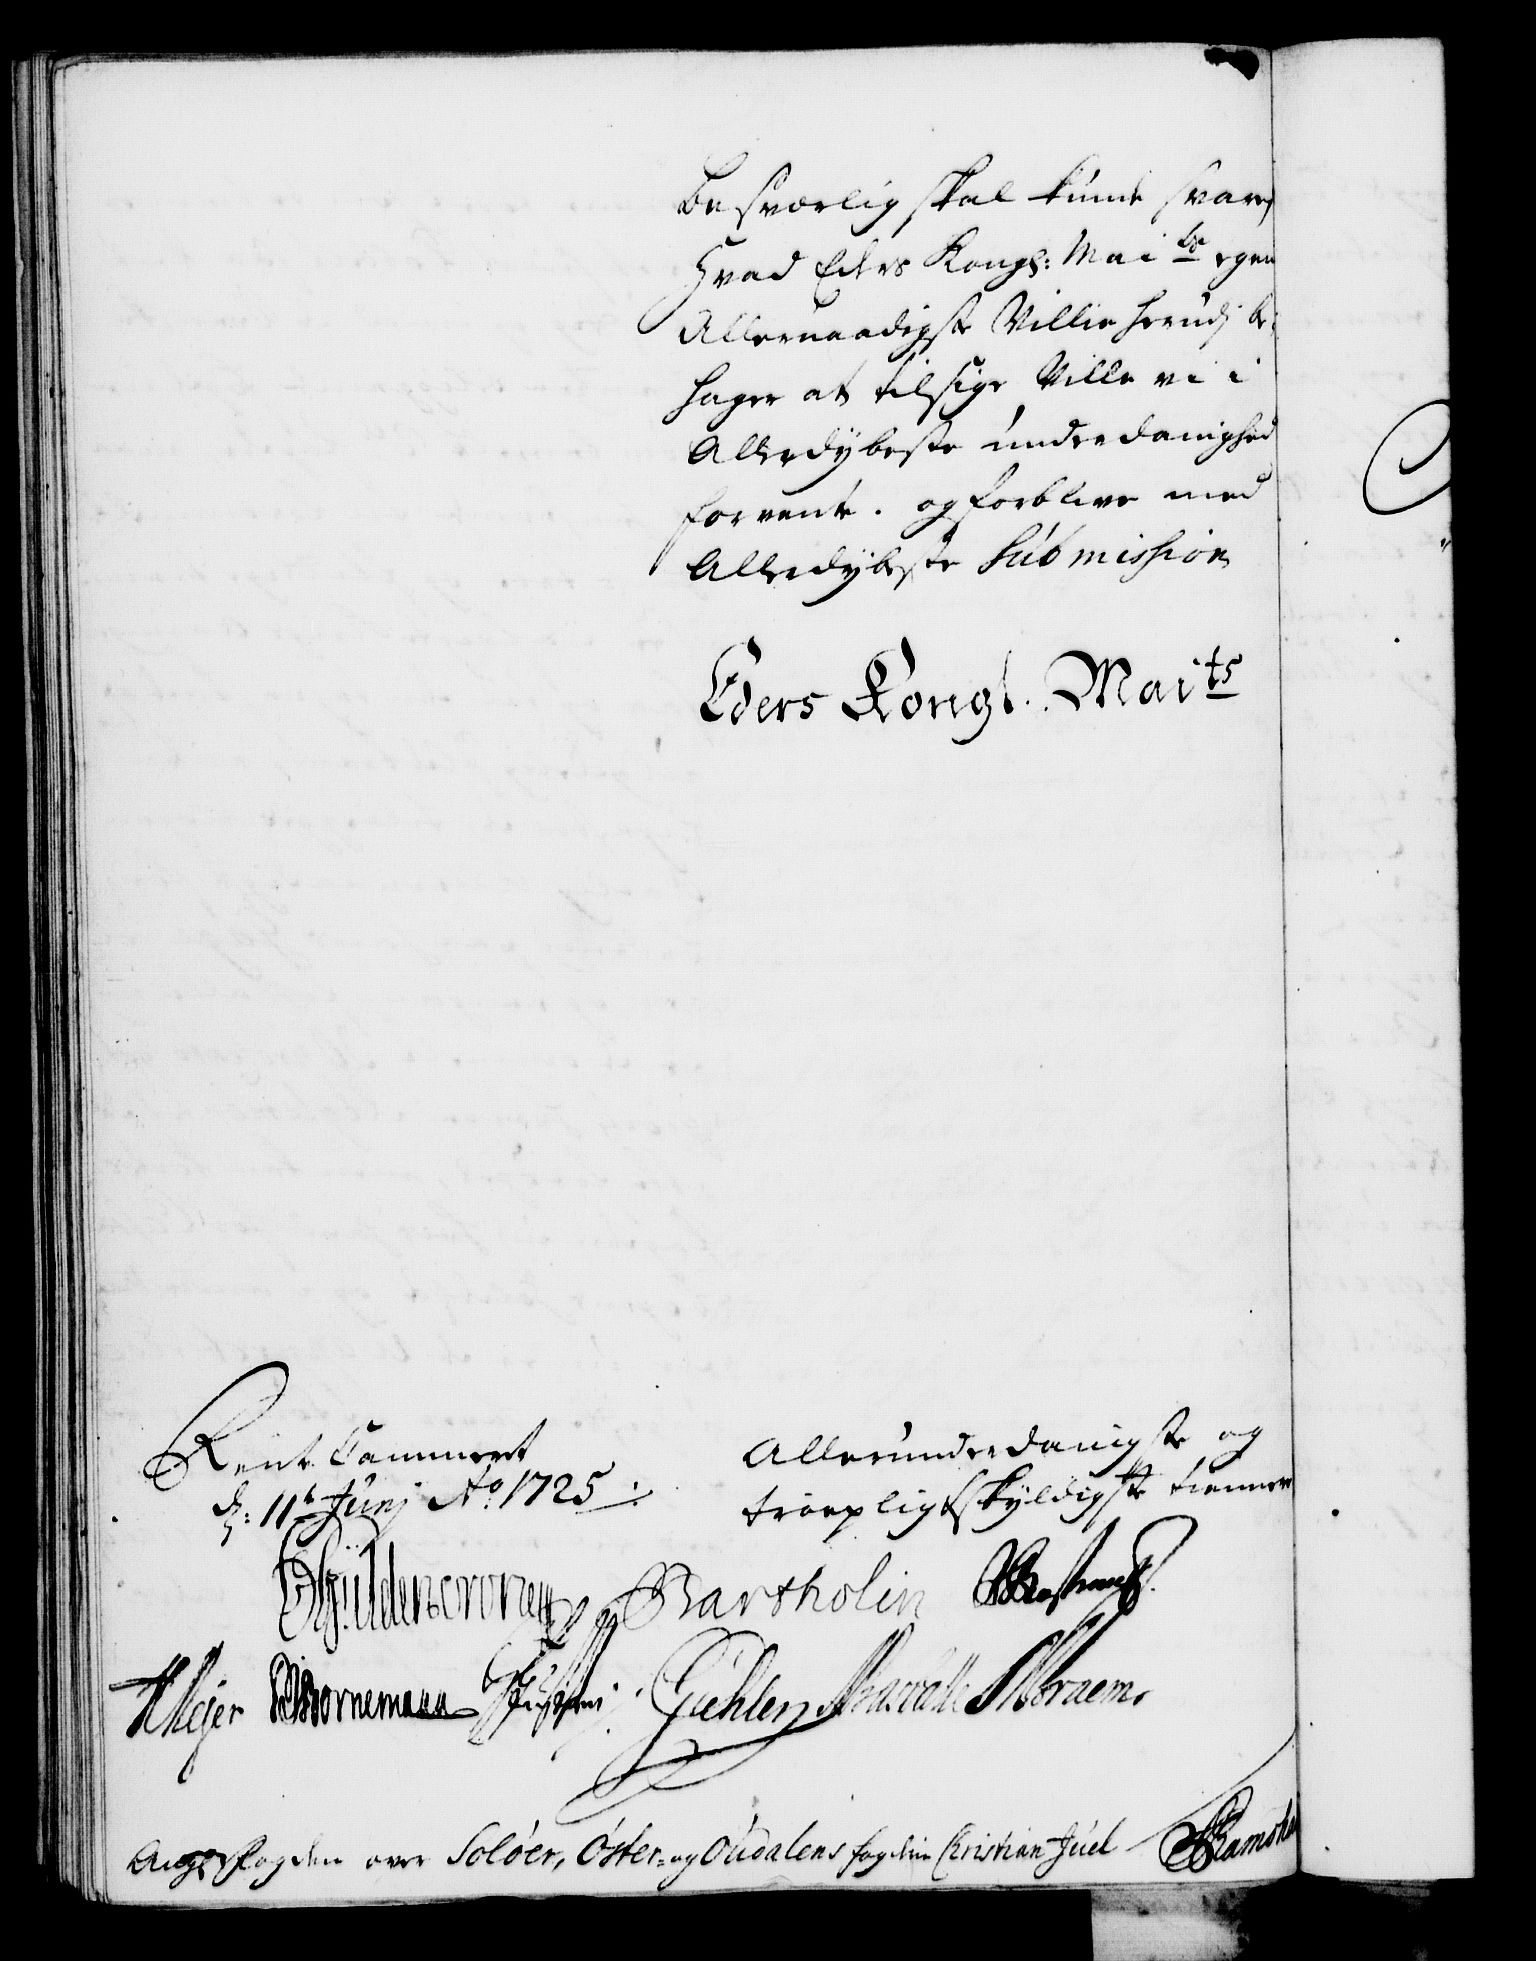 besværlig skal kunde svare,
Hvad Eders Kongl: Mai<sup>ts</sup> egen
Allernaadigste Villie herudj be-
hager at tilsige Ville vi i
Allerdybeste underdanighed
forvente. og forblive med
Allerdybeste Submission
Eders Kongl. Mai<sup>ts</sup>
Rente Cammeret
d: 11<sup>t</sup> Junj Ao 1725
Allerunderdanigste og
troepligtskyldigste tienner
Güldencrone Bartholin
Mejer Bornemann Gühlen Abraem
Ang: Fogden over Soløer, Øster- og Oudalens fogderie Christian Juel Ramsh